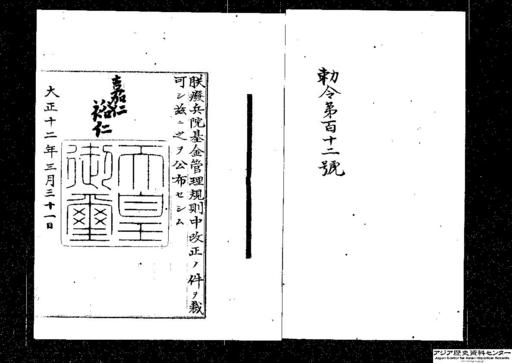 勅令第百十二號
朕癈兵院基金管理規則中改正ノ件ヲ裁
可シ茲ニ之ヲ公布セシム
嘉仁
裕仁
天皇
御璽
大正十二年三月三十一日
アジア歴史資料センター
Japan Center for Asian Historical Records